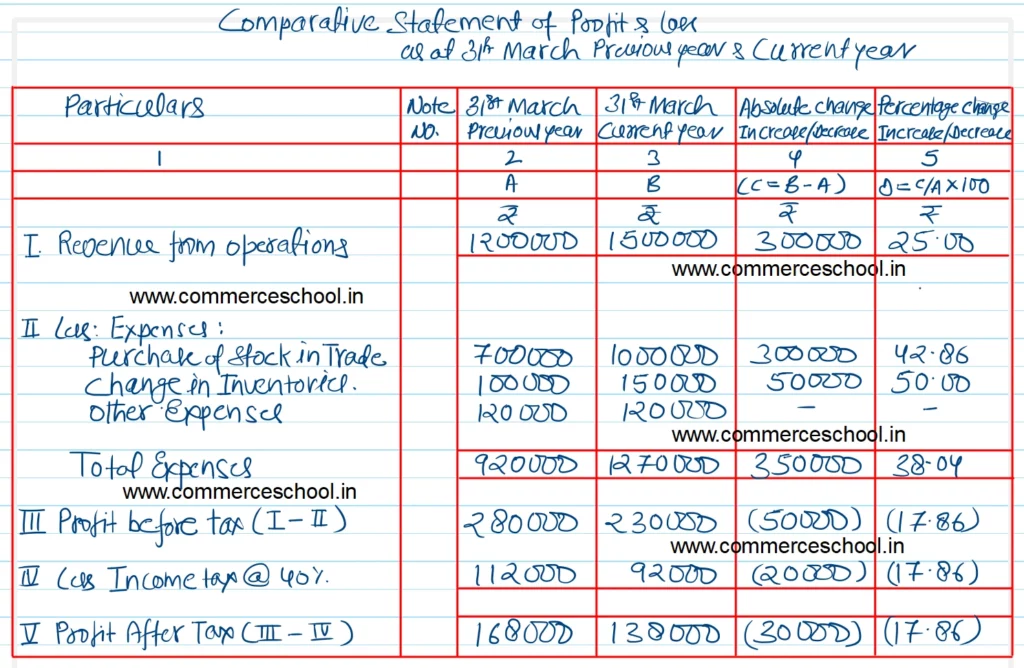 Comparative Statement of Profit & Loss
as at 31st March Previous year & Current year
Particulars Note No. 31st March Previous year 31st March Current year Absolute change Increase/Decrease Percentage change Increase/Decrease
1 2 3 4 5
A B (C=B-A) D=C/A×100
₹ ₹ ₹ ₹
I. Revenue from operations 1200000 1500000 300000 25.00
www.commerceschool.in
www.commerceschool.in
II Less: Expenses:
Purchase of Stock in Trade 700000 1000000 300000 42.86
Change in Inventories. 100000 150000 50000 50.00
Other Expenses 120000 120000 - -
www.commerceschool.in
Total Expenses 920000 1270000 350000 38.04
www.commerceschool.in
III Profit before tax (I-II) 280000 230000 (50000) (17.86)
www.commerceschool.in
IV Less Income tax @ 40% 112000 92000 (20000) (17.86)
V Profit After Tax (III-IV) 168000 138000 (30000) (17.86)